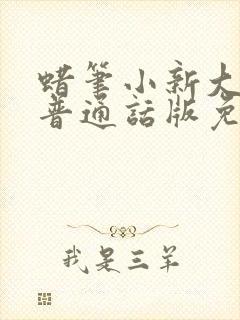 蜡笔小新大
普通話版免
我是三羊